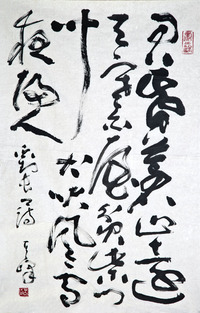 日暮蒼山遠
天寒白屋貧柴門
聞犬吠風雪
夜歸人
劉長卿詩